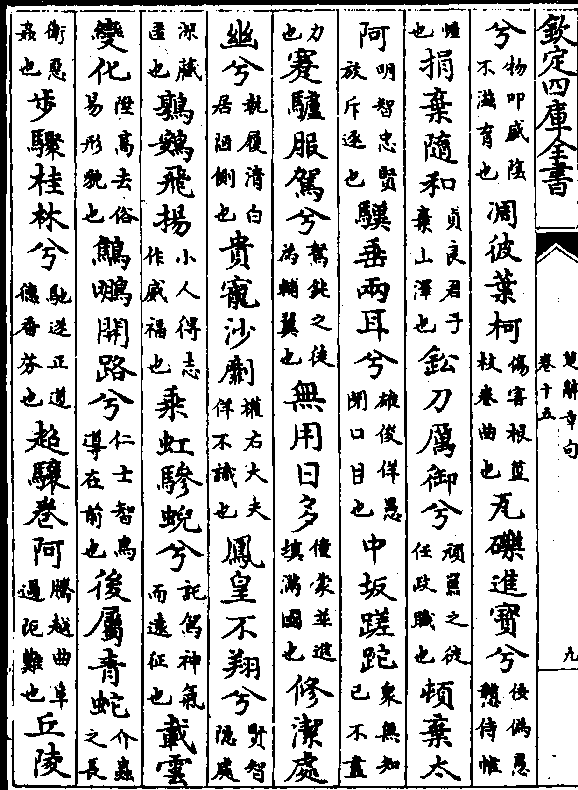 欽定四庫全書
楚辭章句
卷十五
九
兮物叩盛陰不滋育也凋彼葉柯傷害根莖枝卷曲也瓦礫進寶兮佞偽愚戇侍帷
幄也捐棄隨和貞良君子棄山澤也鈆刀厲御兮頑嚚之徒任政職也頓棄太
阿明智忠賢放斥逐也驥垂兩耳兮雄俊佯愚閉口目也中坂蹉跎衆無知己不盡
力也蹇驢服駕兮駑鈍之徒為輔翼也無用日多僮蒙並進填滿國也修潔處
幽兮執履清白居陋側也貴寵沙劘權右大夫佯不識也鳳皇不翔兮賢智隱處
深藏匿也鶉鴳飛揚小人得志作威福也乘虹驂蜺兮託駕神氣而遠征也載雲
變化陞高去俗易形貌也鷦鵬開路兮仁士智鳥導在前也後屬青蛇介蟲之長
衛惡姦也步驟桂林兮馳逐正道德香芬也超驤卷阿騰越曲阜過阨難也丘陵